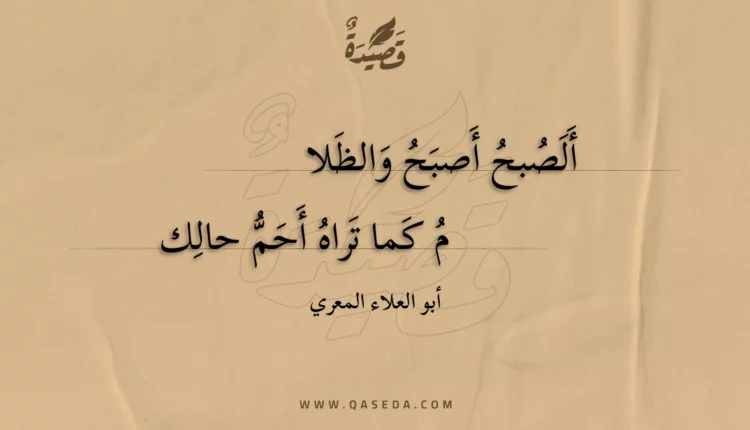 قَصِيْدَةٌ
أَلَصُبحُ أَصبَحُ وَالظَلا
مُ كَما تَراهُ أَحَمُّ حالِك
أبو العلاء المعري
WWW.QASEDA.COM